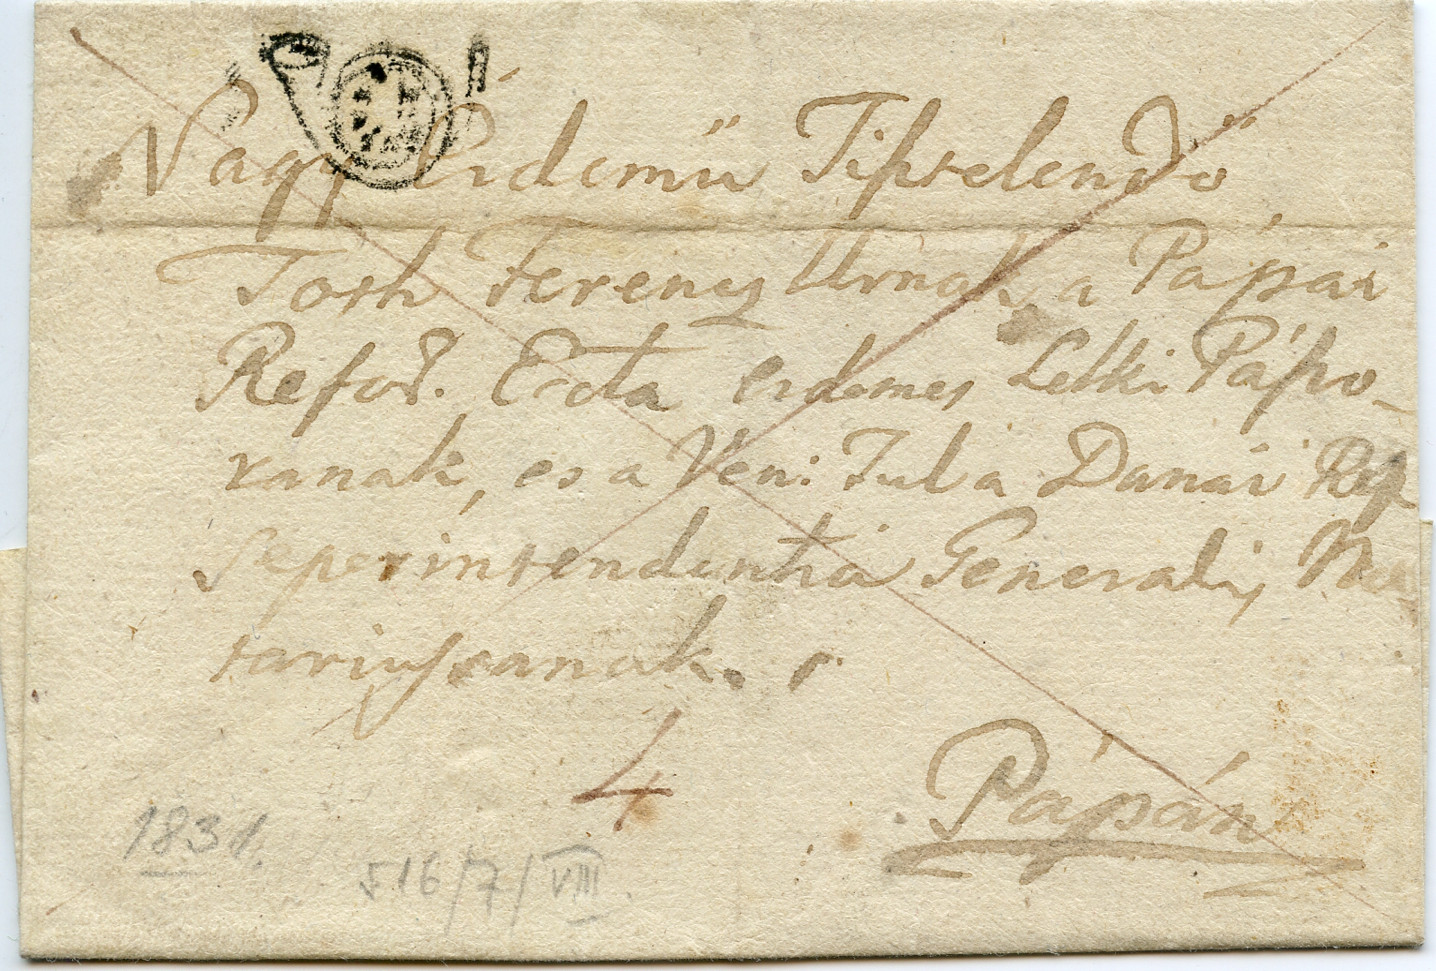 Nagy Érdemü Tisztelendö
Toth Ferencz Urnak, a Pápai
Refor. Ecɫa érdemes Lelki Pászto-
ranak, es a Ven: Tul a Dunai Ref
Seperintendentia Generalis No
tariussanak.
4
Pápán
1831.
516/7/VIII.